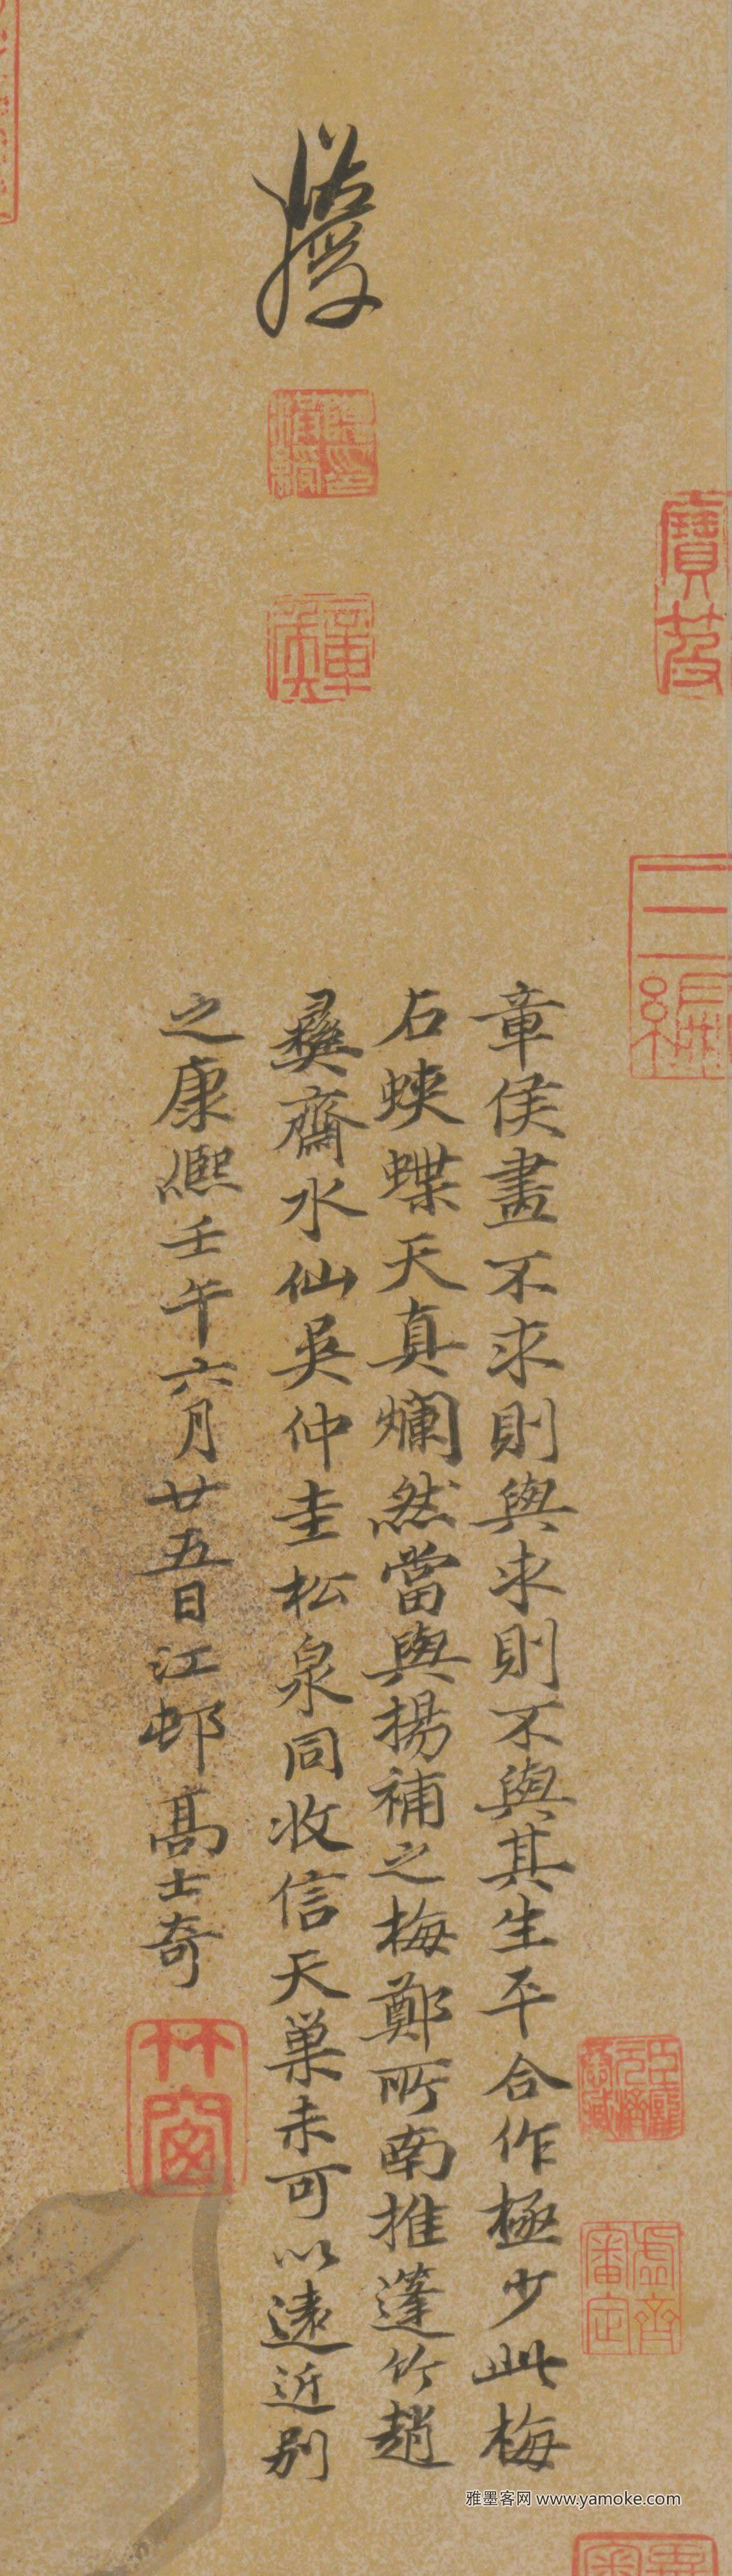 章侯畫不求則與求則不與其生平合作極少此梅
石蛺蝶天真爛然當與揚補之梅鄭所南推蓬竹趙
彝齋水仙吳仲圭松泉同收信天巢未可以遠近別
之康熙壬午六月廿五日江邨高士奇
竹窗
寶笈
三編
虛齋審定
雅墨客网 www.yamoke.com